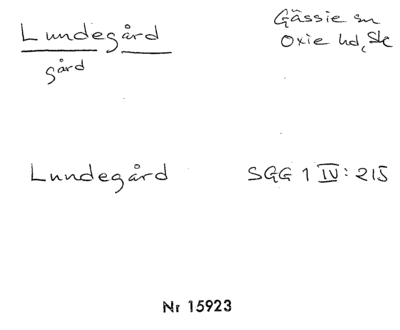 Lundegård
Gässie sn
gård
Oxie hd, Sk
Lundegård
SGG 1 IV: 215
Nr 15923